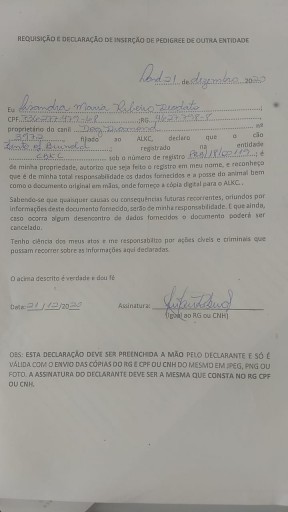 REQUISIÇÃO E DECLARAÇÃO DE INSERÇÃO DE PEDIGREE DE OUTRA ENTIDADE
21 de dezembro 2020
Eu Maria Ribeiro
CPF: , RG:
proprietário do canil Dog Diamond, nº
filiado ao ALKC, declaro que o cão
registrado na entidade
CBKC, sob o número de registro, é
de minha propriedade, autorizo que seja feito o registro em meu nome, e reconheço
que é de minha total responsabilidade os dados fornecidos e a posse do animal bem
como o documento original em mãos, onde forneço a cópia digital para o ALKC..
Sabendo-se que quaisquer causas ou consequências futuras recorrentes, oriundos por
informações deste documento fornecido, serão de minha responsabilidade. E que ainda,
caso ocorra algum desencontro de dados fornecidos o documento poderá ser
cancelado.
Tenho ciência dos meus atos e me responsabilizo por ações cíveis e criminais que
possam recorrer sobre as informações aqui declaradas.
O acima descrito é verdade e dou fé
Date: 21/12/2020 Assinatura:
(Igual ao RG ou CNH)
OBS: ESTA DECLARAÇÃO DEVE SER PREENCHIDA A MÃO PELO DECLARANTE E SÓ É
VÁLIDA COM O ENVIO DAS CÓPIAS DO RG E CPF OU CNH DO MESMO EM JPEG, PNG OU
FOTO. A ASSINATURA DO DECLARANTE DEVE SER A MESMA QUE CONSTA NO RG CPF
OU CNH.